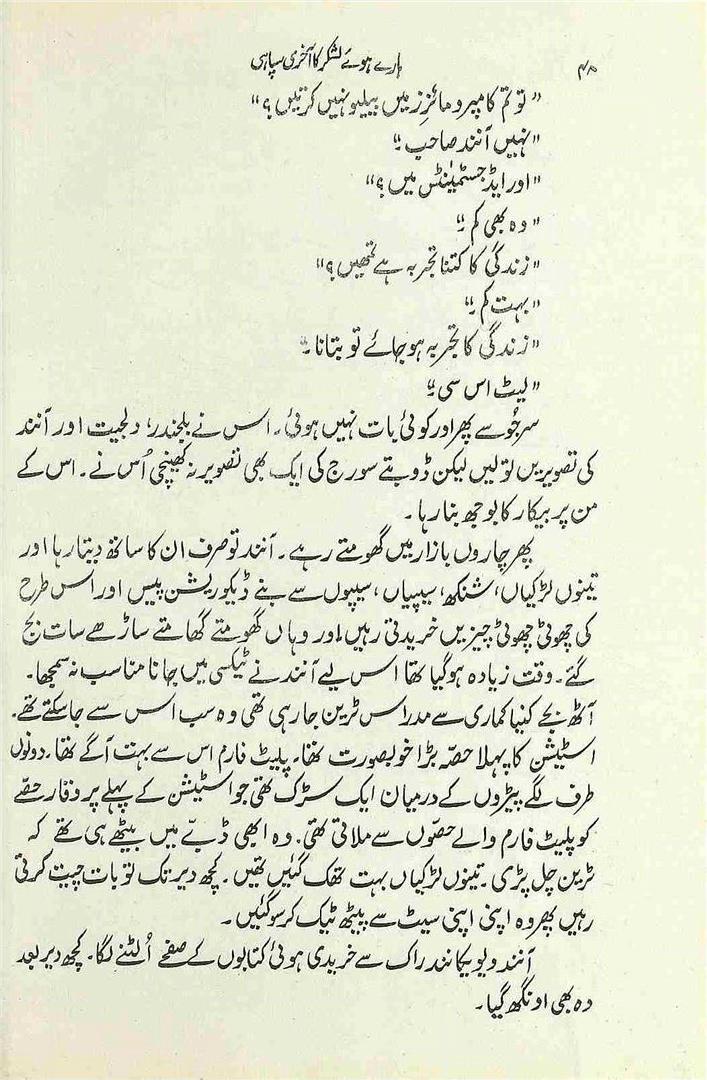 ۴۸ ہارے ہوئے لشکر کا آخری سپاہی
"تو تم کامپرومائزز میں بیلیو نہیں کرتیں؟"
"نہیں آنند صاحب۔"
"اور ایڈجسٹمینٹس میں؟"
"وہ بھی کم۔"
"زندگی کا کتنا تجربہ ہے تمھیں؟"
"بہت کم۔"
"زندگی کا تجربہ ہو جائے تو بتانا۔"
"لیٹ اس سی۔"
سرجُو سے پھر اور کوئی بات نہیں ہوئی۔ اس نے بلجندر، دلجیت اور آنند
کی تصویریں تو لیں لیکن ڈوبتے سورج کی ایک بھی تصویر نہ کھینچی اُس نے۔ اس کے
من پر بیکار کا بوجھ بنا رہا۔
پھر چاروں بازار میں گھومتے رہے۔ آنند تو صرف ان کا ساتھ دیتا رہا اور
تینوں لڑکیاں، شنکھ، سیپیاں، سیپوں سے بنے ڈیکوریشن پیس اور اس طرح
کی چھوٹی چھوٹی چیزیں خریدتی رہیں اور وہاں گھومتے گھامتے ساڑھے سات بج
گئے۔ وقت زیادہ ہو گیا تھا اس لیے آنند نے ٹیکسی میں جانا مناسب نہ سمجھا۔
آٹھ بجے کنیا کماری سے مدراس ٹرین جا رہی تھی وہ سب اس سے جا سکتے تھے۔
اسٹیشن کا پہلا حصّہ بڑا خوبصورت تھا۔ پلیٹ فارم اس سے بہت آگے تھا۔ دونوں
طرف لگے پیڑوں کے درمیان ایک سڑک تھی جو اسٹیشن کے پہلے پر وقار حصّے
کو پلیٹ فارم والے حصّوں سے ملاتی تھی۔ وہ ابھی ڈبّے میں بیٹھے ہی تھے کہ
ٹرین چل پڑی۔ تینوں لڑکیاں بہت تھک گئیں تھیں۔ کچھ دیر تک تو بات چیت کرتی
رہیں پھر وہ اپنی اپنی سیٹ سے پیٹھ ٹیک کر سو گئیں۔
آنند ویویکانند راک سے خریدی ہوئی کتابوں کے صفحے اُلٹنے لگا۔ کچھ دیر بعد
وہ بھی اونگھ گیا۔